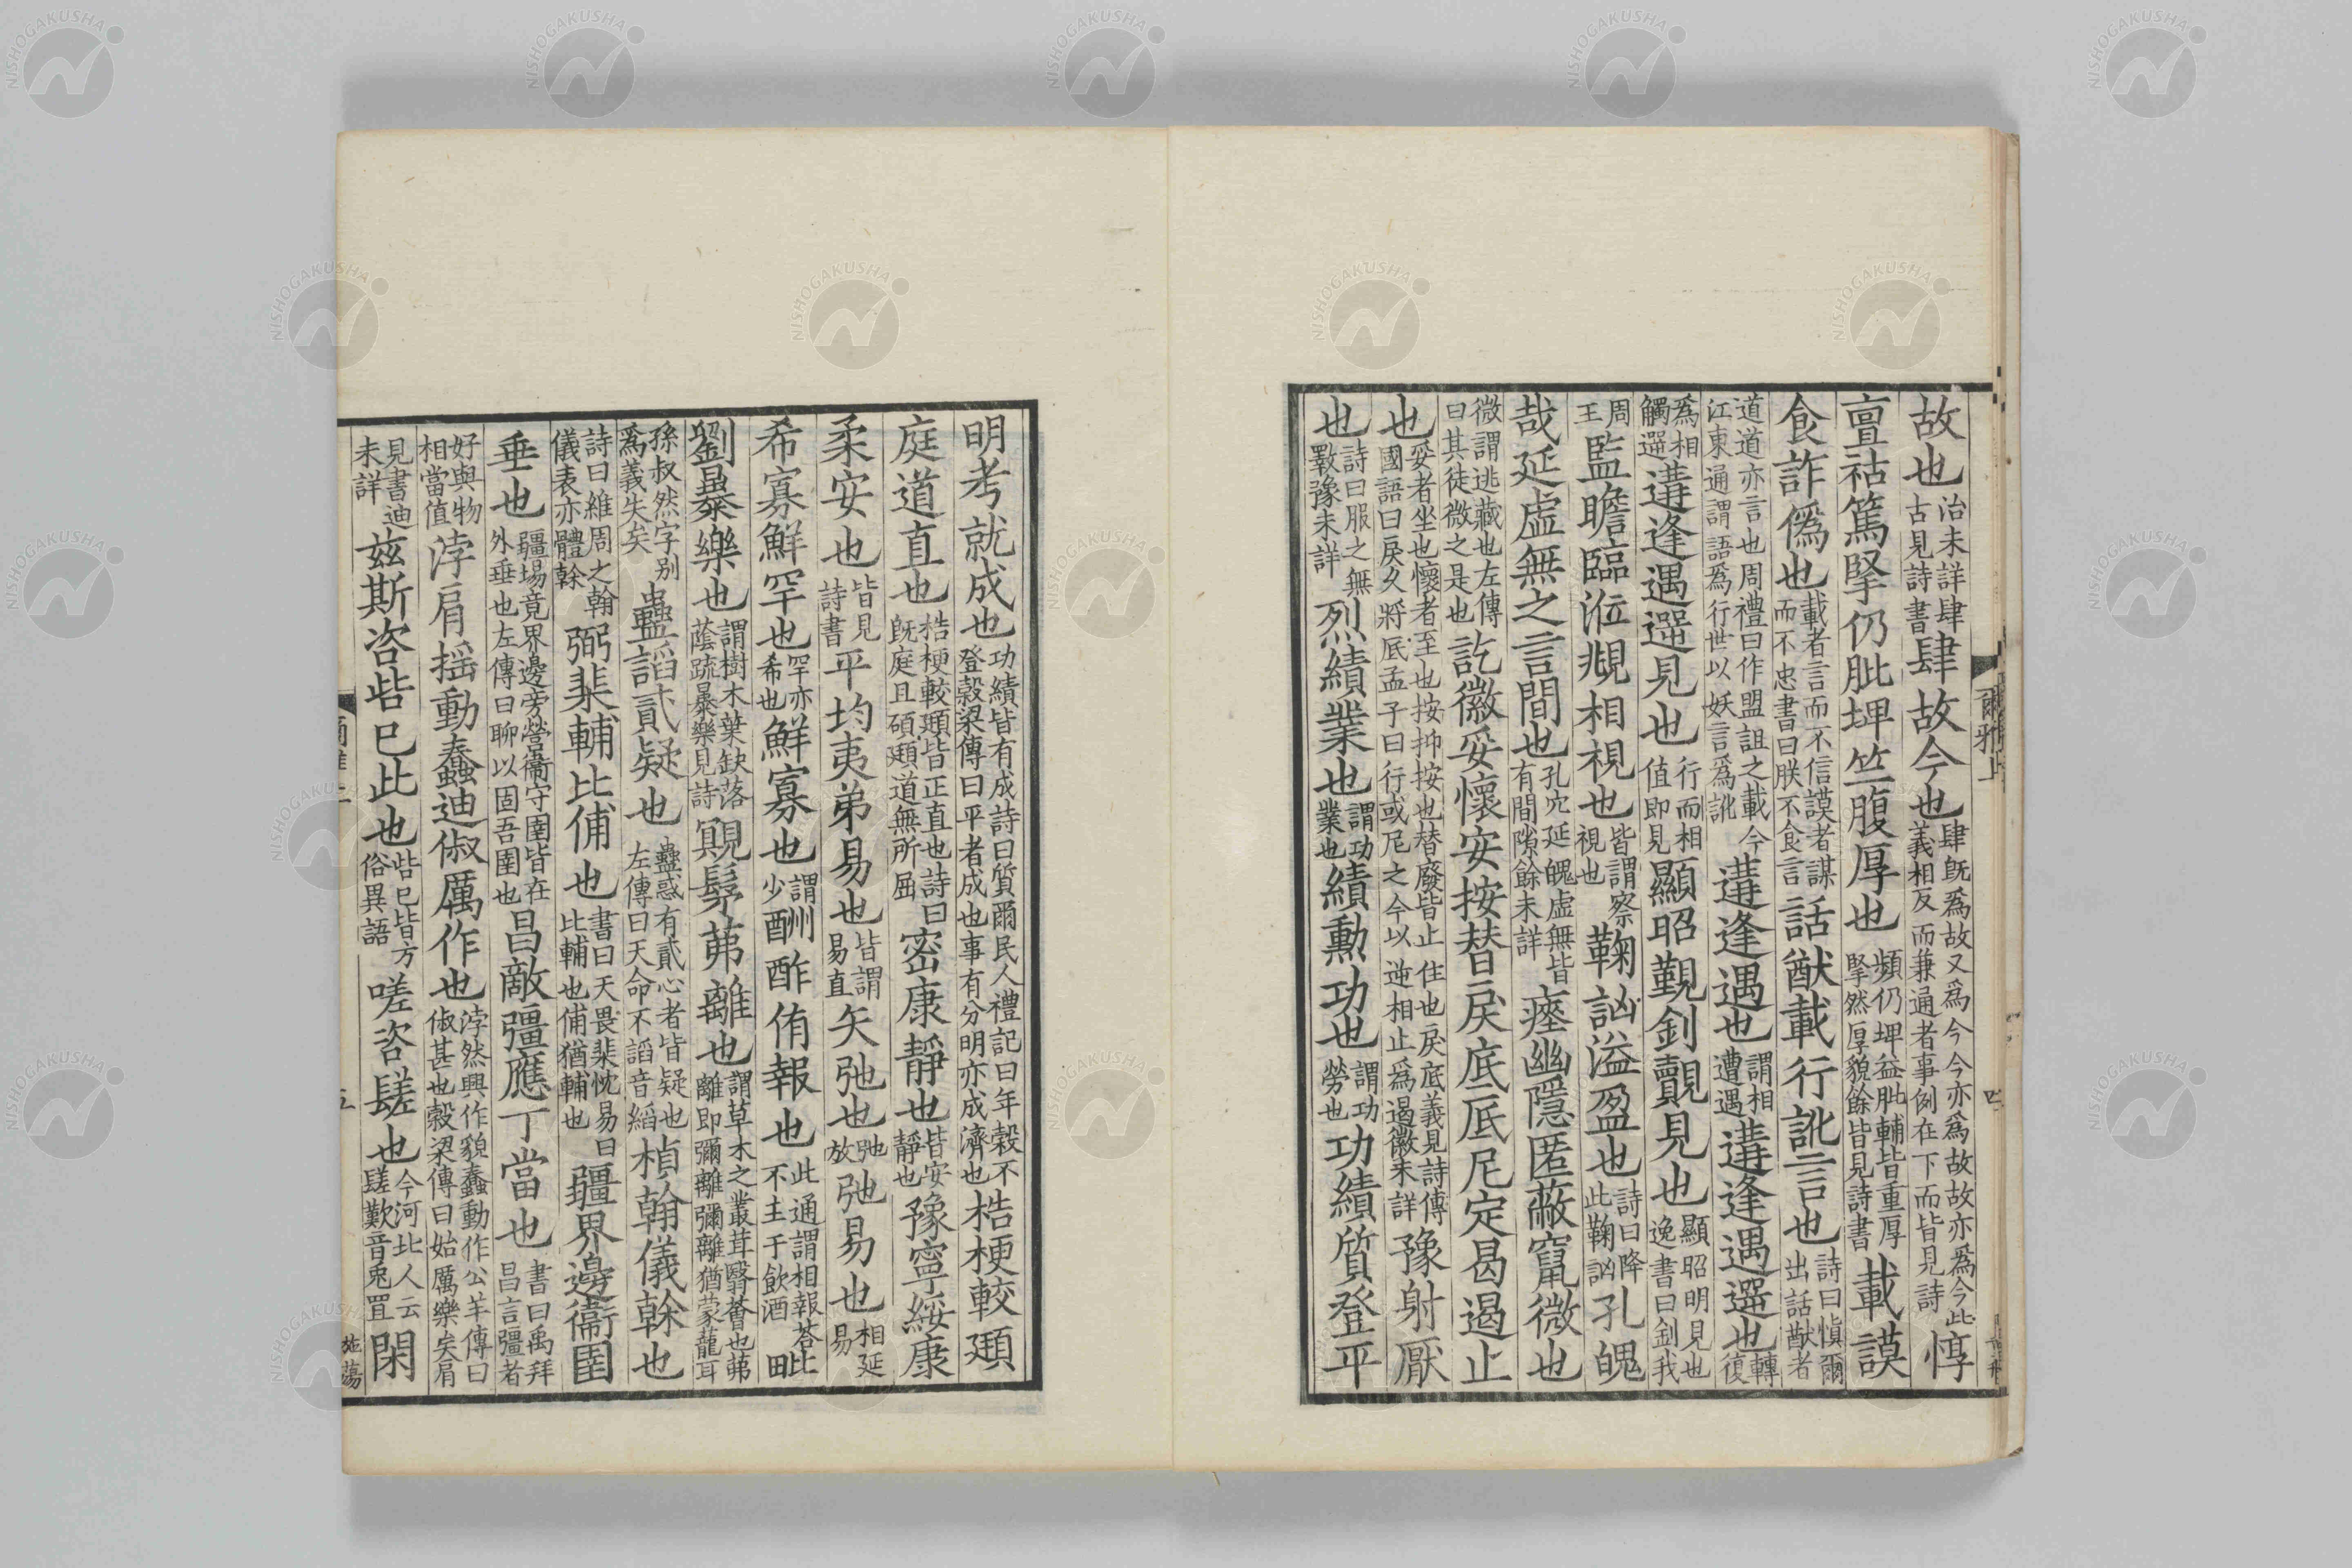 爾雅上
四
故也治未詳肆古見詩書肆故今也肆旣爲故又爲今今亦爲故故亦爲今此義相反而兼通者事例在下而皆見詩惇
亶祜篤掔仍肶埤竺腹厚也頻仍埤益肶輔皆重厚掔然厚貌餘皆見詩書載謨
食詐僞也載者言而不信謨者謀而不忠書曰朕不食言話猷載行訛言也詩曰愼爾出話猷者
道道亦言也周禮曰作盟詛之載今江東通謂語爲行世以妖言爲訛遘逢遇也謂相遭遇遘逢遇遻也轉復
爲相觸遻遘逢遇遻見也行而相值即見顯昭覲釗覿見也顯昭明見也逸書曰釗我
周王監瞻臨涖頫相視也皆謂察視也鞠訩溢盈也詩曰降此鞠訩孔魄
哉延虛無之言間也孔穴延魄虛無皆有間隙餘未詳瘞幽隱匿蔽竄微也
微謂逃藏也左傳曰其徒微之是也訖徽妥懷安按替戾底厎尼定曷遏止
也妥者坐也懷者至也按抑按也替廢皆止住也戾底義見詩傳國語曰戾久將底孟子曰行或尼之今以逆相止爲遏徽未詳豫射厭
也詩曰服之無斁豫未詳烈績業也謂功業也績勳功也謂功勞也功績質登平
明考就成也功績皆有成詩曰質爾民人禮記曰年穀不登穀梁傳曰平者成也事有分明亦成濟也梏梗較頲
庭道直也梏梗較頲皆正直也詩曰旣庭且碩頲道無所屈密康靜也皆安靜也豫寧綏康
柔安也皆見詩書平均夷弟易也皆謂易直矢弛也弛放弛易也相延易
希寡鮮罕也罕亦希也鮮寡也謂少酬酢侑報也此通謂相報荅不主于飲酒毗
劉暴樂也謂樹木葉缺落蔭疏暴樂見詩覭髳茀離也謂草木之叢茸翳薈也茀離即彌離彌離猶蒙蘢耳
孫叔然字別爲義失矣蠱謟貳疑也蠱惑有貳心者皆疑也左傳曰天命不謟音縚楨翰儀榦也
詩曰維周之翰儀表亦體榦弼棐輔比俌也書曰天畏棐忱易曰比輔也俌猶輔也疆界邊衞圉
垂也疆場竟界邊旁營衞守圉皆在外垂也左傳曰聊以固吾圉也昌敵彊應丁當也書曰禹拜昌言彊者
好與物相當値浡肩搖動蠢迪俶厲作也浡然興作貌蠢動作公羊傳曰俶甚也穀梁傳曰始厲樂矣肩
見書迪未詳茲斯咨呰已此也呰已皆方俗異語嗟咨𨲠也今河北人云𨲠歎音兔罝閑